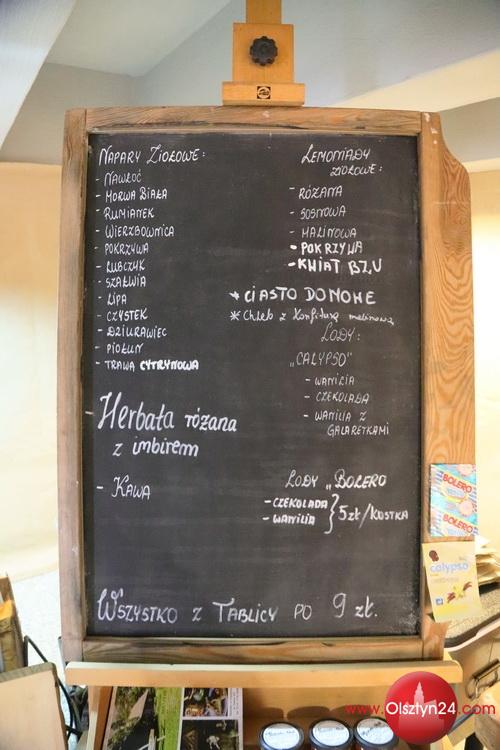 NAPARY ZIOŁOWE:
- NAWŁOĆ
- MORWA BIAŁA
- RUMIANEK
- WIERZBOWNICA
- POKRZYWA
- LUBCZYK
- SZAŁWIA
- LIPA
- CZYSTEK
- DZIURAWIEC
- PIOŁUN
- TRAWA CYTRYNOWA
Herbata różana
z imbirem
- KAWA
LEMONIADY
ZIOŁOWE:
- RÓŻANA
- SOSNOWA
- MALINOWA
- POKRZYWA
- KWIAT BZU
* CIASTO DOMOWE
* Chleb z konfiturą malinową
LODY:
„CALYPSO”
- WANILIA
- CZEKOLADA
- WANILIA Z
GALARETKAMI
LODY „BOLERO
- CZEKOLADA
- WANILIA } 5zł/KOSTKA
WSZYSTKO Z TABLICY PO 9 zł.
BOLERO
BOLERO
calypso
www.Olsztyn24.com